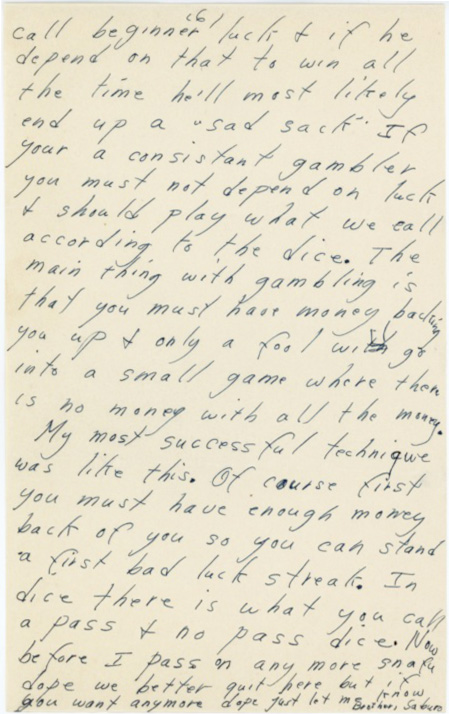 (6)
call beginner luck & if he
depend on that to win all
the time he'll most likely
end up a "sad sack" If
your a consistant gambler
you must not depend on luck
& should play what we call
according to the dice. The
main thing with gambling is
that you must have money backing
you up & only a fool will go
into a small game where there
is no money with all the money.
My most successful technique
was like this. Of course first
you must have enough money
back of you so you can stand
a first bad luck streak. In
dice there is what you call
a pass & no pass dice. Now
before I pass on any more snafu
dope we better quit here but if
you want anymore dope just let me know
Brother, Saburo